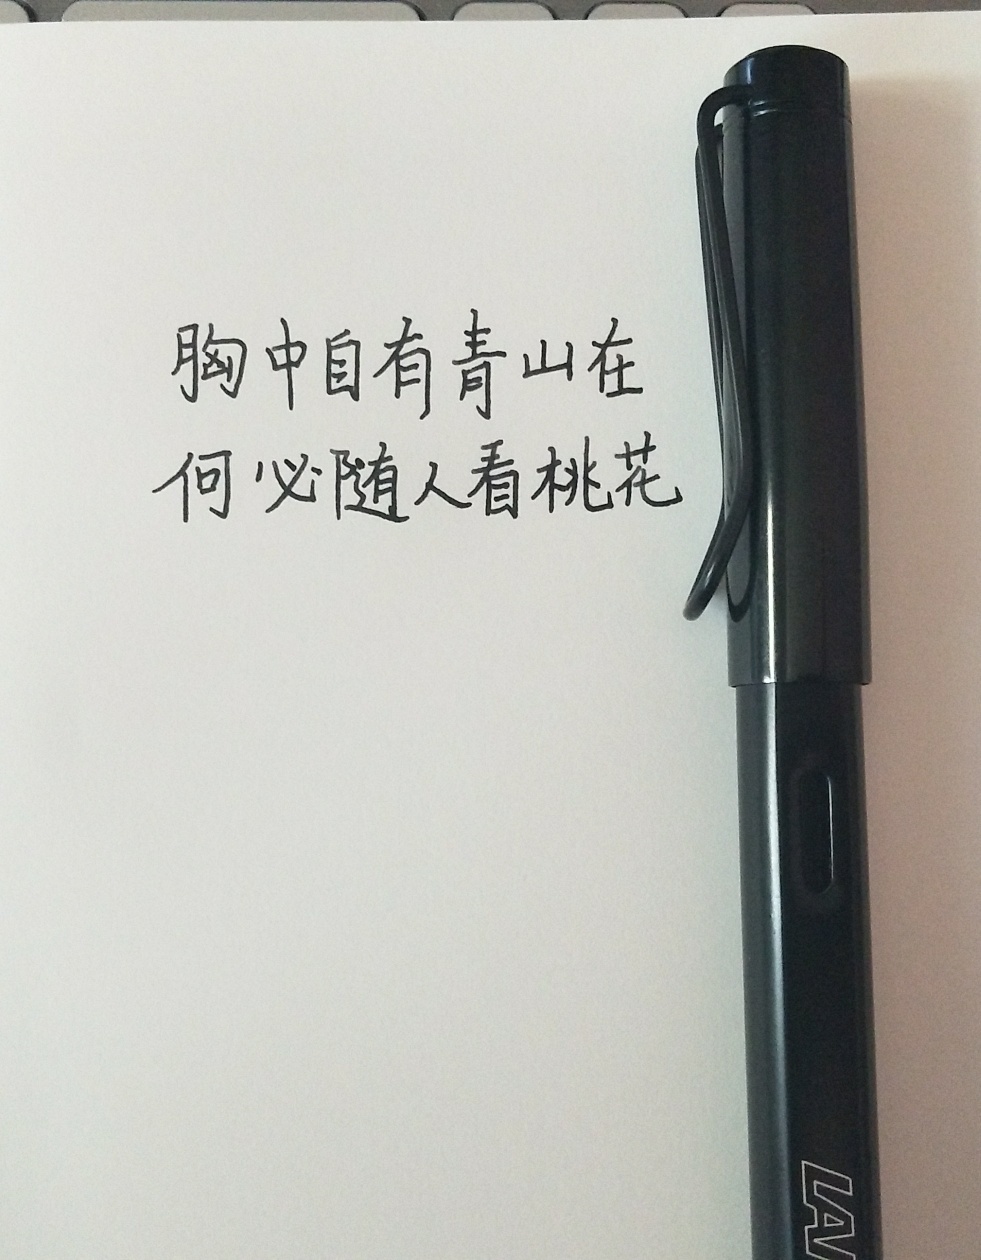 胸中自有青山在
何必随人看桃花
LA